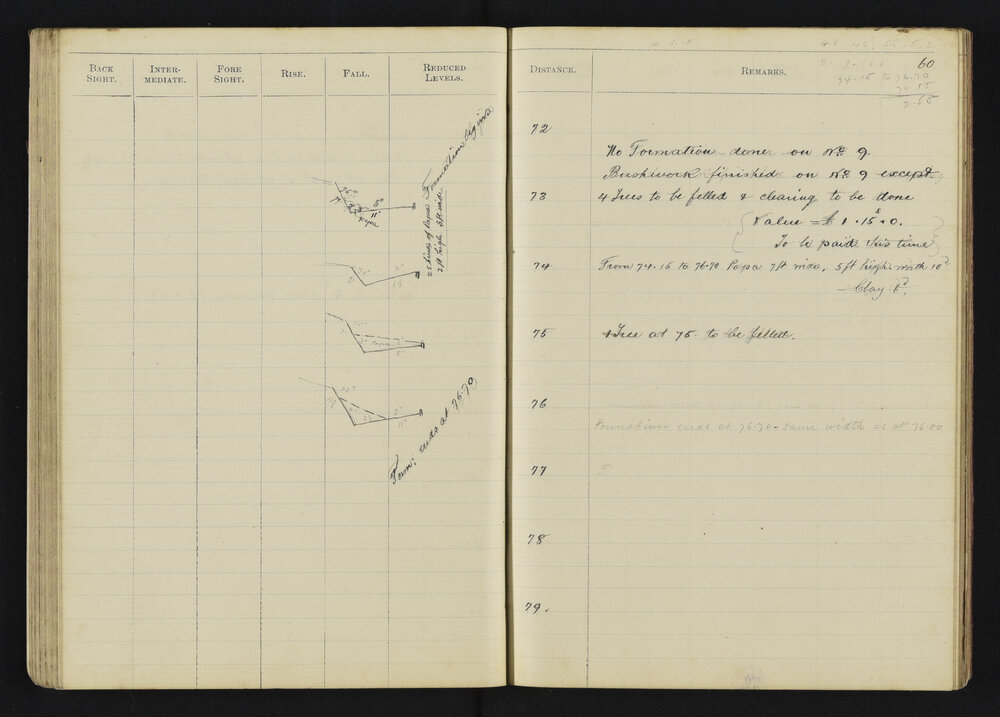 BACK SIGHT.
INTER-MEDIATE.
FORE SIGHT.
RISE.
FALL.
REDUCED LEVELS.
Formation begins
25 links of Papa
2 ft high 3 ft wide
5°
11'
Papa
70°
5°
11'
Papa
5°
Form: ends at 76.70
60
74.15 to 76.70
74 15
2.55
DISTANCE.
REMARKS.
72
No Formation done on No. 9
Bushwork finished on No. 9 except
73
4 Trees to be felled & clearing to be done
Value = £1.15s.0.
To be paid this time
74
From 74.15 to 76.70 Papa 7ft wide. 5ft high. worth 10d
Clay 6d.
75
1 Tree at 75 to be felled.
76
Formation ends at 76.70 - same width as at 76.00
77
F
78
79.